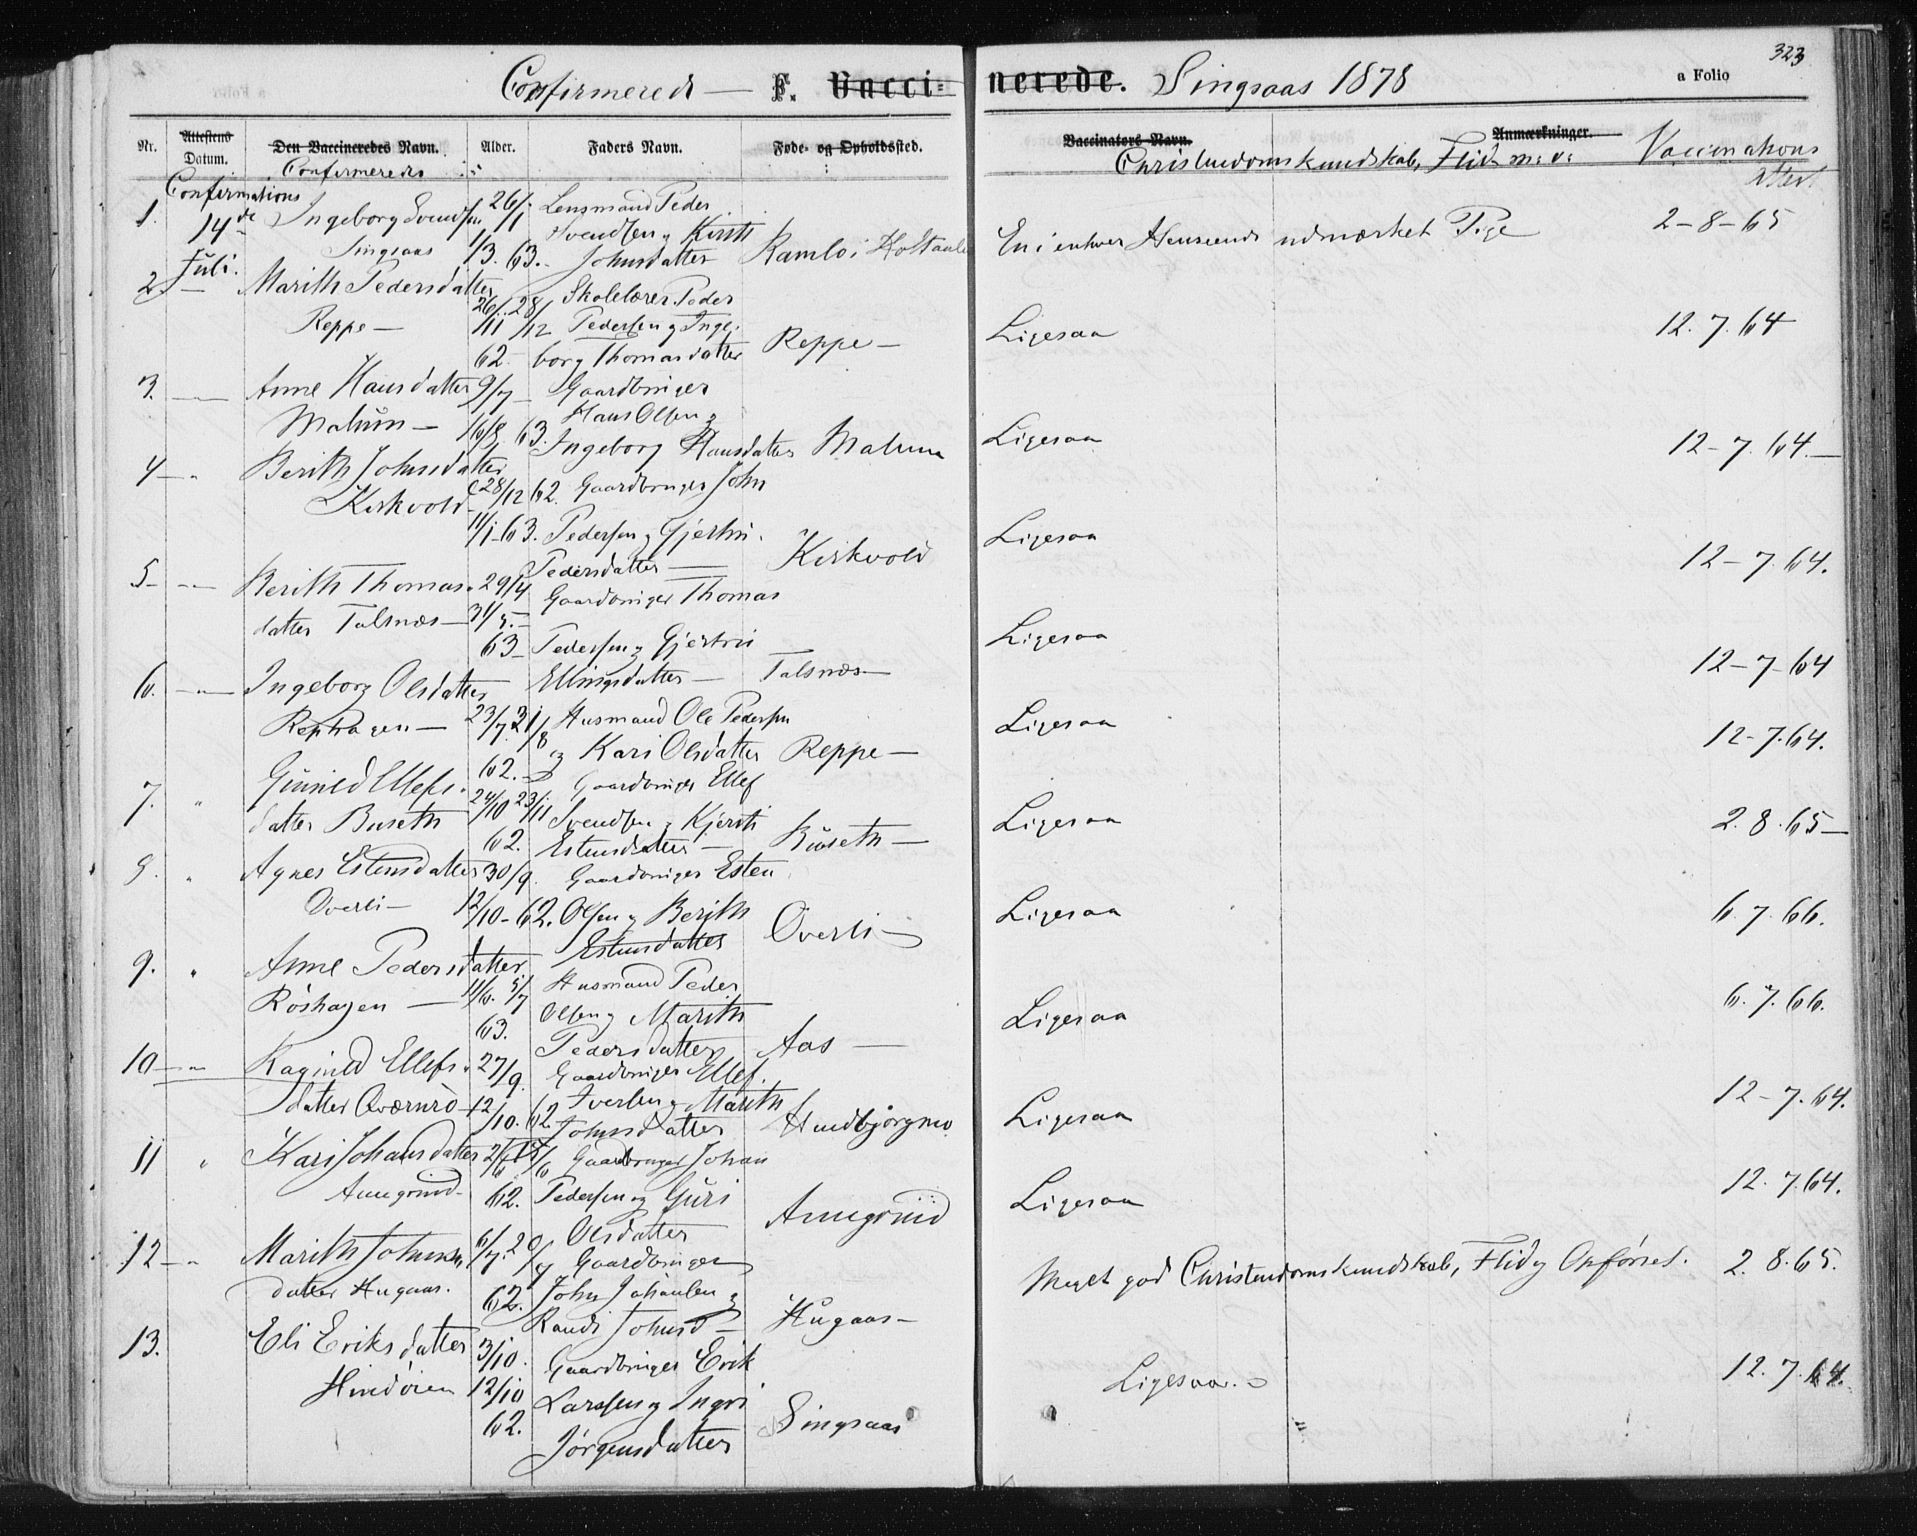 323
Confirmerede — F. Vaccinerede. Singsaas 1878 a Folio
Nr. Attestens Datum. Den Vaccineredes Navn. Alder. Faders Navn. Føde- og Opholdssted. Vaccinators Navn. Anmærkninger.
Confirmerede Christendomskundskab, Flid m: v: Vaccinations attest
Confirmations
1. 14de Juli. Ingeborg Svendsen 26/1 Lensmand Peder
Singsaas 1/3. 63. Svendsen og Kirsti
Johnsdatter Ramlo i Holtaalen En i enhver Henseende udmærket Pige 2-8-65
2. — Marith Pedersdatter Skolelærer Peder
Reppe — 26/11 28/12 Pedersen og Inge-
62 borg Thomasdatter Reppe — Ligesaa 12. 7. 64
3. — Anne Hansdatter 9/7 Gaardbruger
Malum — 16/8 63. Hans Olsen og
Ingeborg Hansdatter Malum Ligesaa 12-7. 64.—
4 — " Berith Johnsdatter
Kirkvold 28/12 62. Gaardbruger John
11/1-63. Pedersen og Gjertru
Pedersdatter — Kirkvold Ligesaa 12-7. 64.
5 — Berith Thomas- 29/4 Gaardbruger Thomas
datter Talsnæs — 31/5.
63 — Pedersen og Gjertru
Ellingsdatter — Talsnæs — Ligesaa 12-7-64
6. — Ingeborg Olsdatter
Rephagen — 23/7. 31/8 Husmand Ole Pedersen
62. og Kari Olsdatter Reppe — Ligesaa 12-7.64.
7. " Gunild Ellefs- Gaardbruger Ellef
datter Buseth 24/10 23/11 Svendsen og Kjersti
62. Estensdatter — Buseth — Ligesaa 2. 8. 65—
8. " Agnes Estensdatter 30/9. Gaardbruger Esten
Overli — 12/10-62. Olsen og Berith
Estensdatter Överli — Ligesaa 6. 7. 66.
9. " Anne Pedersdatter
Röshagen — 11/6. 5/7 Husmand Peder
63. Olsen og Marith
Pedersdatter Aas — Ligesaa 6. 7. 66.
10 — Ragnild Ellefs- 27/9. Gaardbruger Ellef
datter 12/10. 62 Iversen og Marith
Johnsdatter Ligesaa 12-7. 64.
11 " Kari Johansdatter Gaardbruger Johan
62. Pedersen og Guri
Olsdatter Ligesaa 12. 7.64.
12 — " Marith Johns- 6/7. Gaardbruger
datter Hugaas. 62. John Johansen og
Randi Johnsd — Hugaas — Meget god Christendomskundskab, Flid og Opførsel. 2. 8.65.
13. Eli Eriksdatter 3/10. Gaardbruger Erik
12/10 Larssen og Ingri
62. Jörgensdatter Singsaas Ligesaa. 12. 7. 64.